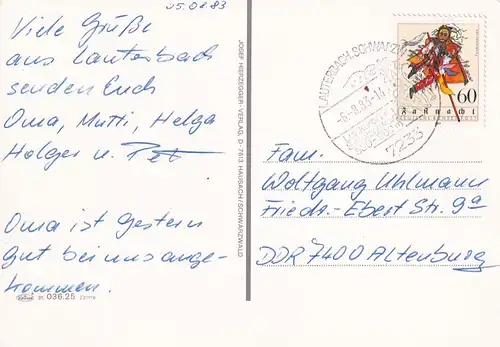 05.08.83
Viele Grüße
aus Lauterbach
senden Euch
Oma, Mutti, Helga
Holger u.
Oma ist gestern
gut bei uns ange-
kommen.
36.036.25
JOSEF HERZEGGER-VERLAG, D-7613 HAUSACH/SCHWARZWALD
LAUTERBACH, SCHWARZW
-6.-8.83-
7233
60
Fastnacht
Fam.
Wolfgang Uhlmann
Friedr.-Ebert Str. 9a
DDR 7400 Altenburg